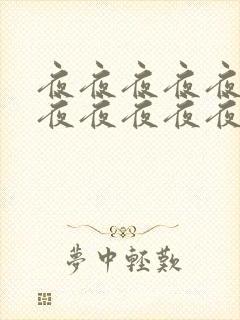 夜夜夜夜夜
夜夜夜夜夜
夢中輕歎